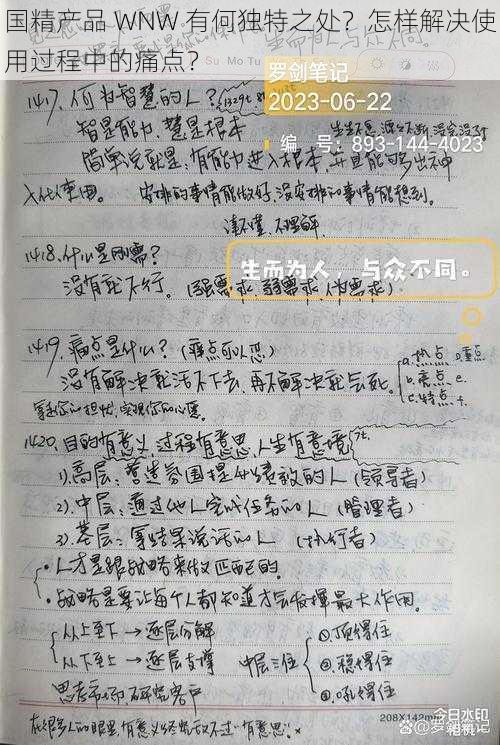 国精产品 WNW 有何独特之处？怎样解决使
用过程中的痛点？
Su Mo Tu
罗剑笔记
2023-06-22
编 号：893-144-4023
1417、何为智慧的人？
智是能力，慧是根本
简单说就是：有能力进入根本，并且能够出神
入化使用。 安排的事情能做好，没安排的事情能想到。
读不懂，不理解
1418、什么是刚需？
生而为人，与众不同。
没有就不行。（强需求、弱需求、伪需求）
1419、痛点是什么？（痛点可以恐）
没有解决就活不下去，再不解决就会死。
a.热点 d.重点
b.亮点 e.
c.特点 f.
1420、目的有意义，过程有意思，人生有意境
1）、高层：营造氛围提升绩效的人（领导者）
2）、中层：通过他人完成任务的人（管理者）
3）、基层：拿结果说话的人（执行者）
人才是跟战略来做匹配的。
战略是要让每个人都知道才会发挥最大作用。
从上至下→逐层分解
从下至上→逐层支撑
中层三住
①、顶得住
②、稳得住
③、吼得住
208X142mm
今日水印
相机
百家号/罗剑笔记